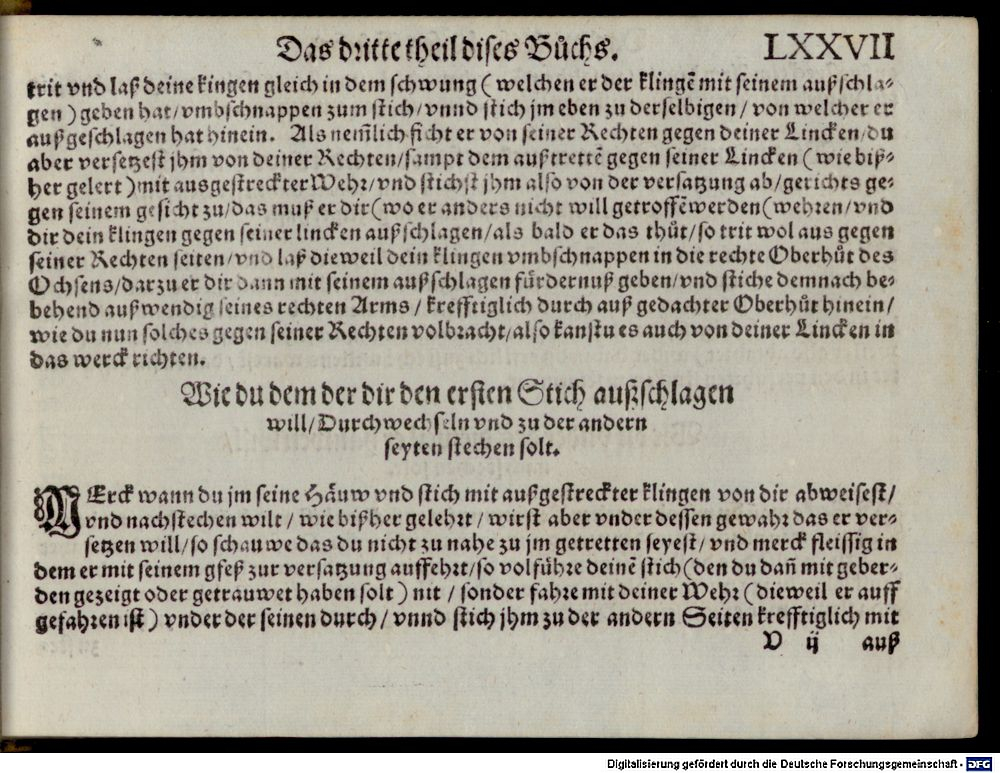 Das dritte theil dises Bůchs. LXXVII
trit vnd laß deine kingen gleich in dem schwung (welchen er der klingẽ mit seinem außschla⸗
gen) geben hat/vmbschnappen zum stich/vnnd stich jm eben zu derselbigen/von welcher er
außgeschlagen hat hinein. Als nemlich ficht er von seiner Rechten gegen deiner Lincken/du
aber versetzest jhm von deiner Rechten/sampt dem außtrettẽ gegen seiner Lincken (wie biß⸗
her gelert) mit ausgestreckter Wehr/vnd stichst jhm also von der versatzung ab/gerichts ge⸗
gen seinem gesicht zu/das muß er dir (wo er anders nicht will getroffẽ werden (wehren/vnd
dir dein klingen gegen seiner lincken außschlagen/als bald er das thůt/so trit wol aus gegen
seiner Rechten seiten/vnd laß dieweil dein klingen vmbschnappen in die rechte Oberhůt des
Ochsens/darzu er dir dann mit seinem außschlagen fürdernuß geben/vnd stiche demnach be⸗
behend außwendig seines rechten Arms/krefftiglich durch auß gedachter Oberhůt hinein/
wie du nun solches gegen seiner Rechten volbracht/also kanstu es auch von deiner Lincken in
das werck richten.
Wie du dem der dir den ersten Stich außschlagen
will/Durchwechseln vnd zu der andern
seyten stechen solt.
MErck wann du jm seine Häuw vnd stich mit außgestreckter klingen von dir abweisest/
vnd nachstechen wilt/wie bißher gelehrt/wirst aber vnder dessen gewahr das er ver⸗
setzen will/so schauwe das du nicht zu nahe zu jm getretten seyest/vnd merck fleissig in
dem er mit seinem gfeß zur versatzung auffehrt/so volführe deinẽ stich (den du dañ mit geber⸗
den gezeigt oder getrauwet haben solt) nit/sonder fahre mit deiner Wehr (dieweil er auff
gefahren ist) vnder der seinen durch/vnnd stich jhm zu der andern Seiten krefftiglich mit
V ij auß
Digitalisierung gefördert durch die Deutsche Forschungsgemeinschaft - DFG